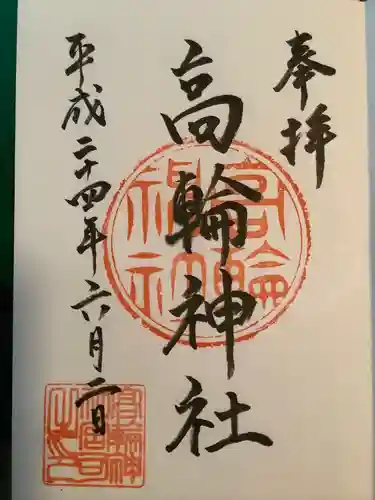 奉拝
高輪神社
平成二十四年六月二日
高輪神社